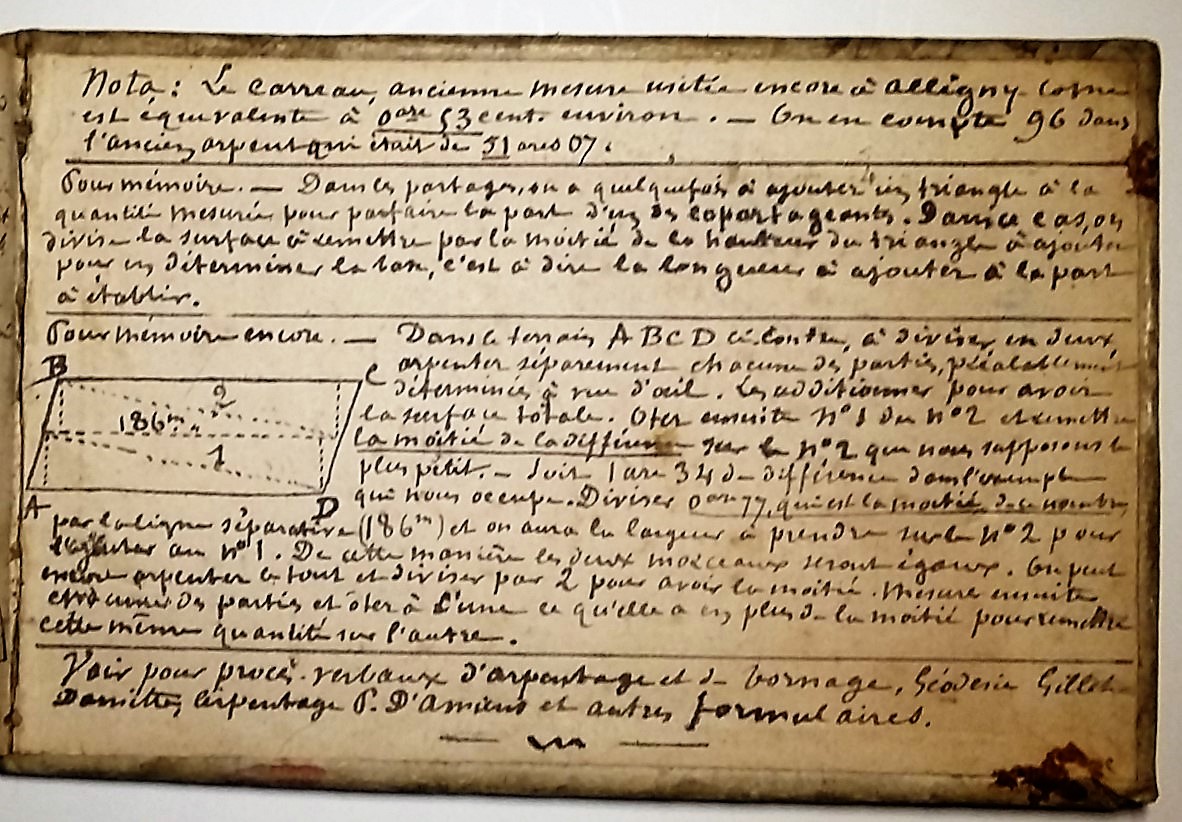 Nota : Le carreau, ancienne mesure usitée encore à Alligny Cosne
est équivalente à 0 are 53 cent. environ. — On en compte 96 dans
l'ancien arpent qui était de 51 ares 07.
Pour mémoire. — Dans les partages, on a quelquefois à ajouter un triangle à la
quantité mesurée pour parfaire la part d'un des copartageants. Dans ce cas, on
divise la surface à remettre par la moitié de la hauteur du triangle à ajouter
pour en déterminer la base, c'est à dire la longueur à ajouter à la part
à établir.
Pour mémoire encore. — Dans le terrain A B C D ci-contre, à diviser en deux
arpenter séparement chacune des parties, préalablement
déterminées à vue d'œil. Les additionner pour avoir
la surface totale. Oter ensuite n° 1 du n° 2 et remettre
la moitié de la différence sur le n° 2 que nous supposons le
plus petit. — Soit 1 are 34 de différence dans l'exemple
qui nous occupe. Diviser 0 are 77, qui est la moitié de ce nombre,
B
C
2
186m
1
A
D
par la ligne séparative (186m) et on aura la largeur à prendre sur le n° 2 pour
l'ajouter au n° 1. De cette manière les deux morceaux seront égaux. On peut
encore arpenter le tout et diviser par 2 pour avoir la moitié. Mesurer ensuite
des parties et ôter à l'une ce qu'elle a en plus de la moitié pour remettre
cette même quantité sur l'autre.
Voir pour procès-verbaux d'arpentage et de bornage, Géodésie Gillet-
Damitte, l'arpentage P. D'Amiens et autres formulaires.